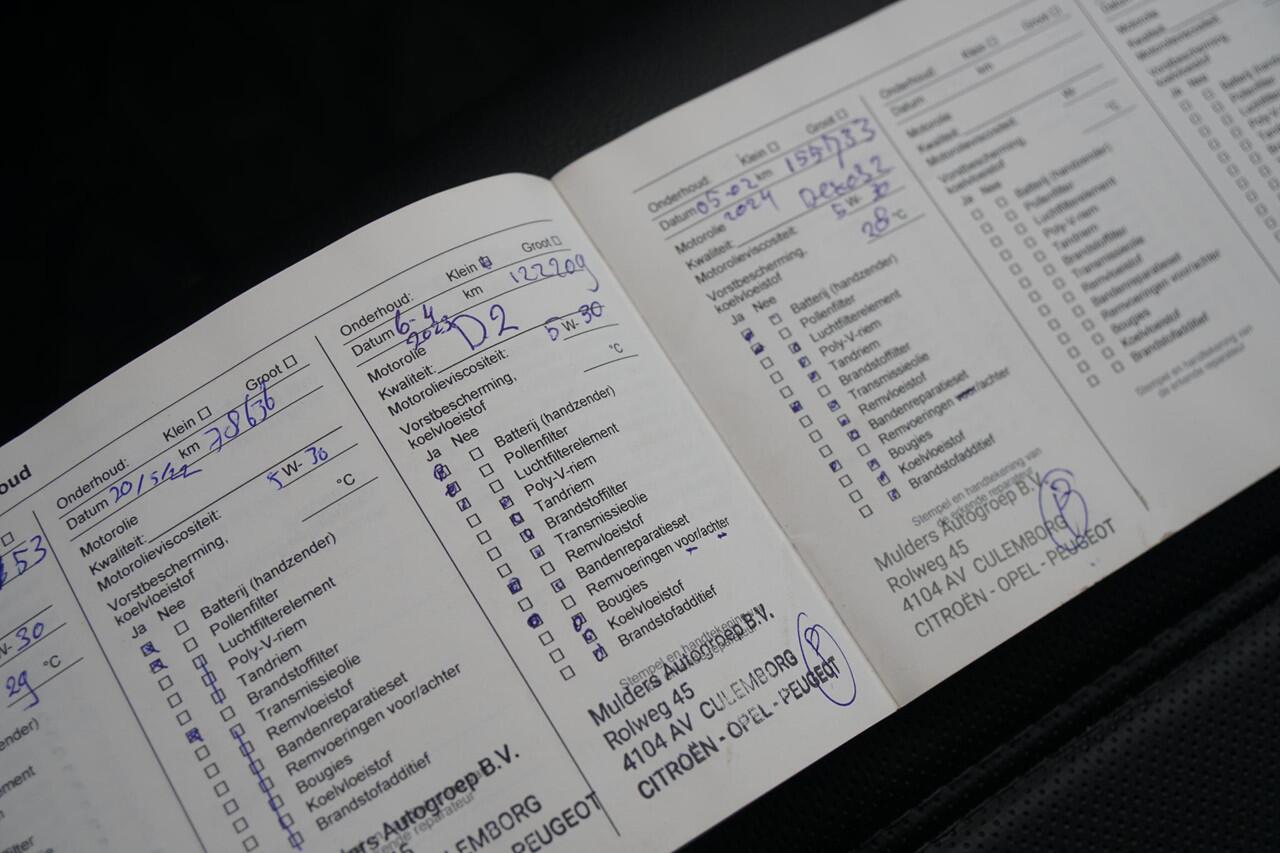 oud
53
W- 30
29 °C
ender)
ement
filter
Onderhoud: Klein Groot
Datum 20/5/22 km 78636
Motorolie
Kwaliteit:
Motorolieviscositeit: 5 W- 30
Vorstbescherming,
koelvloeistof °C
Ja Nee
Batterij (handzender)
Pollenfilter
Luchtfilterelement
Poly-V-riem
Tandriem
Brandstoffilter
Transmissieolie
Remvloeistof
Bandenreparatieset
Remvoeringen voor/achter
Bougies
Koelvloeistof
Brandstofadditief
Autogroep B.V.
reparateur
PEUGEOT
Onderhoud: Klein Groot
Datum 6-4 2023 km 122209
Motorolie
Kwaliteit: D2
Motorolieviscositeit: 5 W- 30
Vorstbescherming,
koelvloeistof °C
Ja Nee
Batterij (handzender)
Pollenfilter
Luchtfilterelement
Poly-V-riem
Tandriem
Brandstoffilter
Transmissieolie
Remvloeistof
Bandenreparatieset
Remvoeringen voor/achter
Bougies
Koelvloeistof
Brandstofadditief
Stempel en handtekening
Mulders Autogroep B.V.
Rolweg 45
4104 AV CULEMBORG
CITROËN - OPEL - PEUGEOT
Onderhoud: Klein Groot
Datum 05-02 2024 km 155733
Motorolie
Kwaliteit:
Motorolieviscositeit: 5 W- 30
Vorstbescherming,
koelvloeistof 28 °C
Ja Nee
Batterij (handzender)
Pollenfilter
Luchtfilterelement
Poly-V-riem
Tandriem
Brandstoffilter
Transmissieolie
Remvloeistof
Bandenreparatieset
Remvoeringen voor/achter
Bougies
Koelvloeistof
Brandstofadditief
Stempel en handtekening van
de erkende reparateur
Mulders Autogroep B.V.
Rolweg 45
4104 AV CULEMBORG
CITROËN - OPEL - PEUGEOT
Onderhoud: Klein Groot
Datum km
Motorolie
Kwaliteit:
Motorolieviscositeit: W-
Vorstbescherming,
koelvloeistof °C
Ja Nee
Batterij (handzender)
Pollenfilter
Luchtfilterelement
Poly-V-riem
Tandriem
Brandstoffilter
Transmissieolie
Remvloeistof
Bandenreparatieset
Remvoeringen voor/achter
Bougies
Koelvloeistof
Brandstofadditief
Stempel en handtekening van
de erkende reparateur
Datum
Motorolie
Kwaliteit:
Motorolieviscositeit
Vorstbescherming
koelvloeistof
Ja Nee